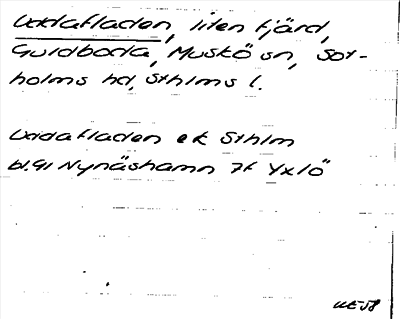 Uddafladen, liten fjärd,
Guldboda, Muskö sn, Sot-
holms hd, Sthlms l.
Uddafladen ek Sthlm
bl. 91 Nynäshamn 7f Yxlö